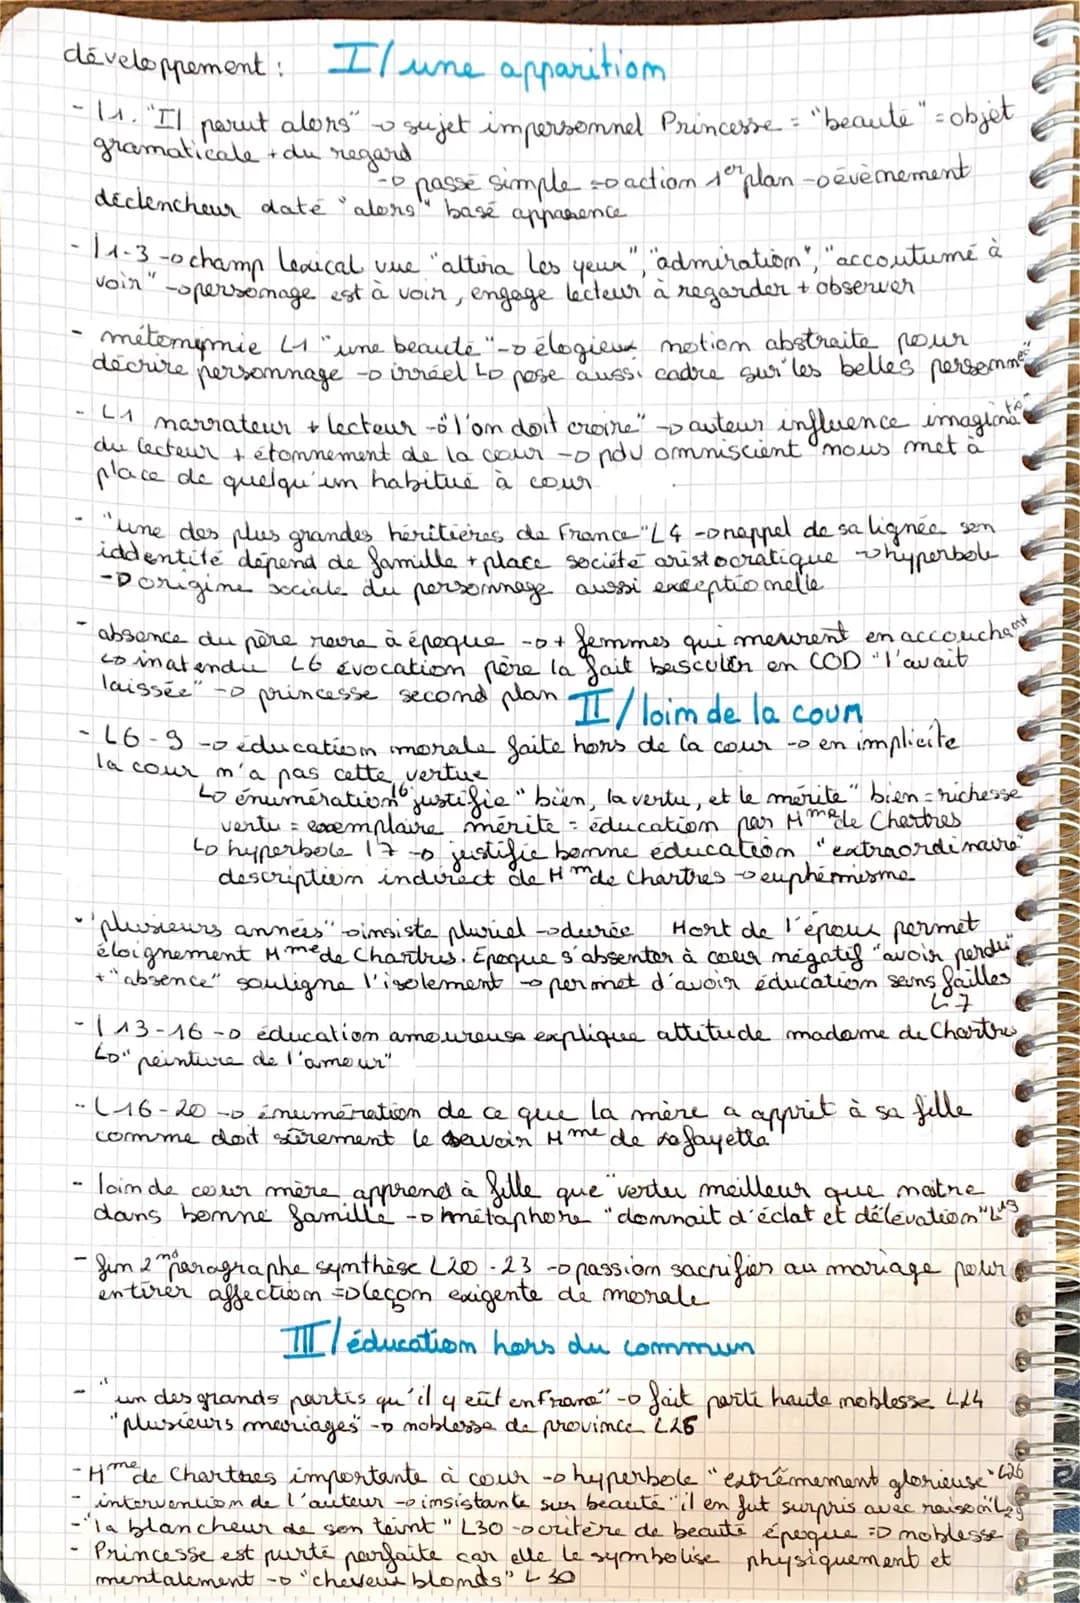 développement : I/ une apparition
- l1. "Il parut alors" -> sujet impersonnel Princesse = "beauté" = objet
gramaticale + du regard
-> passé simple => action 1er plan -> évènement
déclencheur daté "alors" basé apparence
- l1-3 -> champ lexical vue "attira les yeux", "admiration", "accoutumé à
voir" -> personnage est à voir, engage lecteur à regarder + observer
- métonymie L1 "une beauté" -> élogieux notion abstraite pour
décrire personnage -> irréel L> pose aussi cadre sur "les belles personnes"
- L1 narrateur + lecteur -> "l'on doit croire" -> auteur influence imaginat°
du lecteur + étonnement de la cour -> pdv omniscient nous met à
place de quelqu'un habitué à cour
- "une des plus grandes héritières de France" L4 -> rappel de sa lignée son
iddentité dépend de famille + place société aristocratique -> hyperbole
-> origine sociale du personnage aussi exceptionnelle
- absence du père rare à époque -> + femmes qui meurent en accouchant
L> inatendu L6 évocation père la fait basculer en COD "l'avait
laissée" -> princesse second plan
II/ loin de la cour
- L6-9 -> éducation morale faite hors de la cour -> en implicite
la cour n'a pas cette vertue
L> énumération l6 justifie "bien, la vertu, et le mérite" bien = richesse
vertu = exemplaire mérite = éducation par Mme de Chartres
L> hyperbole l7 -> justifie bonne éducation "extraordinaire"
description indirect de Mm de Chartres -> euphémisme
- "plusieurs années" -> insiste pluriel -> durée Mort de l'époux permet
éloignement Mme de Chartres. Époque s'absenter à cour négatif "avoir perdu"
+ "absence" souligne l'isolement -> permet d'avoir éducation sans failles
L7
- l13-16 -> éducation amoureuse explique attitude madame de Chartres
L> "peinture de l'amour"
- L16-20 -> énumération de ce que la mère a apprit à sa fille
comme doit sûrement le savoir Mme de Lafayette
- loin de cour mère apprend à fille que vertu meilleur que naitre
dans bonne famille -> métaphore "donnait d'éclat et d'élévation" L19
- fin 2nd paragraphe synthèse L20-23 -> passion sacrifier au mariage pour
entirer affection => leçon exigente de morale
III/ éducation hors du commun
- "un des grands partis qu'il y eût en France" -> fait parti haute noblesse L24
"plusieurs mariages" -> noblesse de province L25
- Mme de Chartres importante à cour -> hyperbole "extrêmement glorieuse" L26
- intervention de l'auteur -> insistante sur beauté "il en fut surpris avec raison" L29
- "la blancheur de son teint" L30 -> critère de beauté époque => noblesse
- Princesse est purté parfaite car elle le symbolise physiquement et
mentalement -> "cheveux blonds" L30